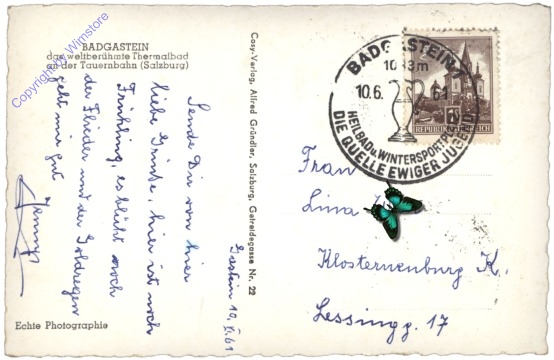 BADGASTEIN
das weltberühmte Thermalbad
an der Tauernbahn (Salzburg)
Copyright by Wimstore
Gastein 10. VI. 61
Sende Dir von hier
liebe Grüße, hier ist noch
Frühling, es blüht noch
der Flieder und der Goldregen
geht mir gut
Echte Photographie
Cosy-Verlag, Alfred Gründler, Salzburg, Getreidegasse Nr. 22
BADGASTEIN 1
1083m
10.6. 61
HEILBAD u. WINTERSPORTPLATZ
DIE QUELLE EWIGER JUGEND
REPUBLIK
Frau
Lina
Klosterneuburg K.
Lessingg. 17